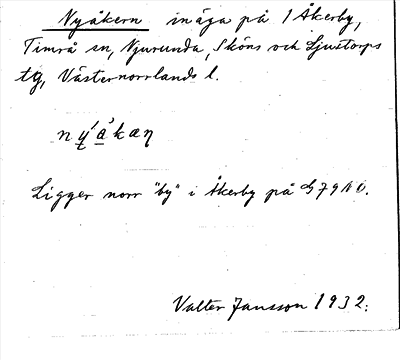 Nyåkern inäga på 1 Åkerby,
Timrå sn, Njurunda, Sköns och Ljustorps
tg, Västernorrlands l.
Ligger norr "by" i Åkerby på
Valter Jansson 1932.